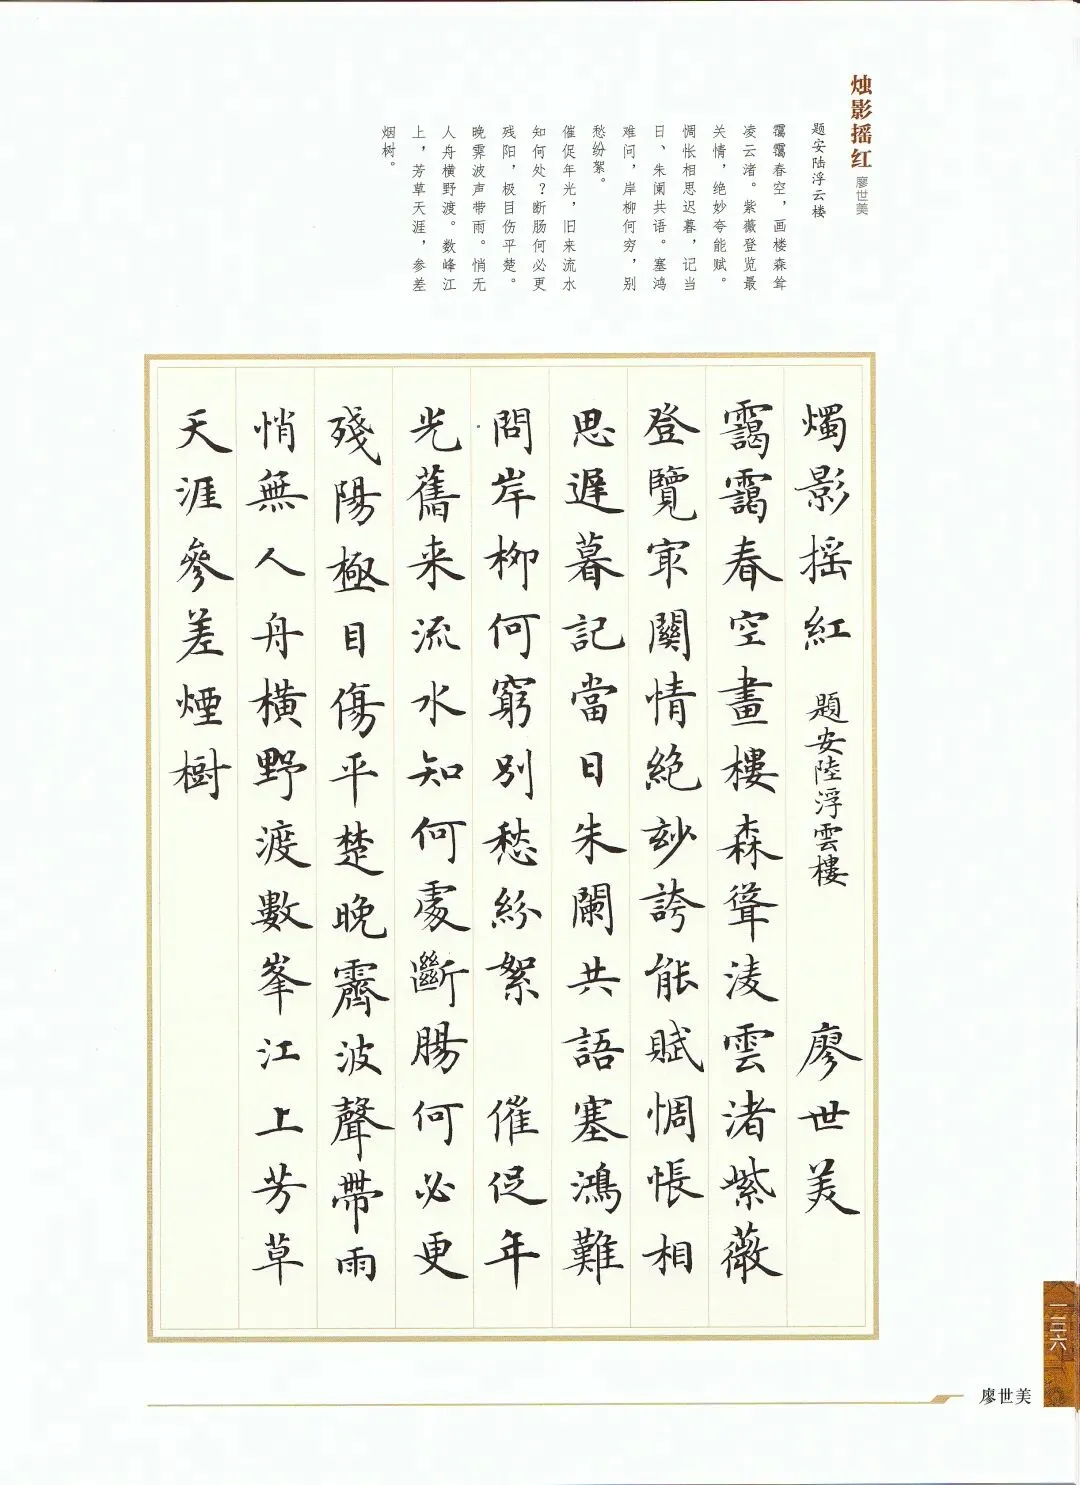 烛影摇红 廖世美
题安陆浮云楼
霭霭春空，画楼森耸
凌云渚。紫薇登览最
关情，绝妙夸能赋。
惆怅相思迟暮，记当
日、朱阑共语。塞鸿
难问，岸柳何穷，别
愁纷絮。
催促年光，旧来流水
知何处？断肠何必更
残阳，极目伤平楚。
晚霁波声带雨。悄无
人舟横野渡。数峰江
上，芳草天涯，参差
烟树。
燭影摇紅 題安陸浮雲樓 廖世美
靄靄春空畫樓森聳淩雲渚紫薇
登覽冣關情絶玅誇能賦惆悵相
思遲暮記當日朱闌共語塞鴻難
問岸柳何窮別愁紛絮 催促年
光舊来流水知何處斷腸何必更
殘陽極目傷平楚晚霽波聲帶雨
悄無人舟橫野渡數峯江上芳草
天涯參差煙樹
一三六
廖世美